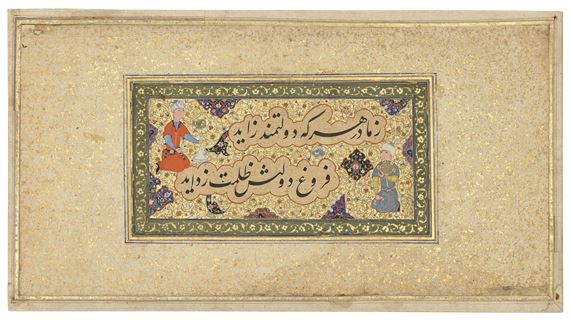 ز مادر هر که دولتمند زاید
فروغ دولتش ظلمت زداید